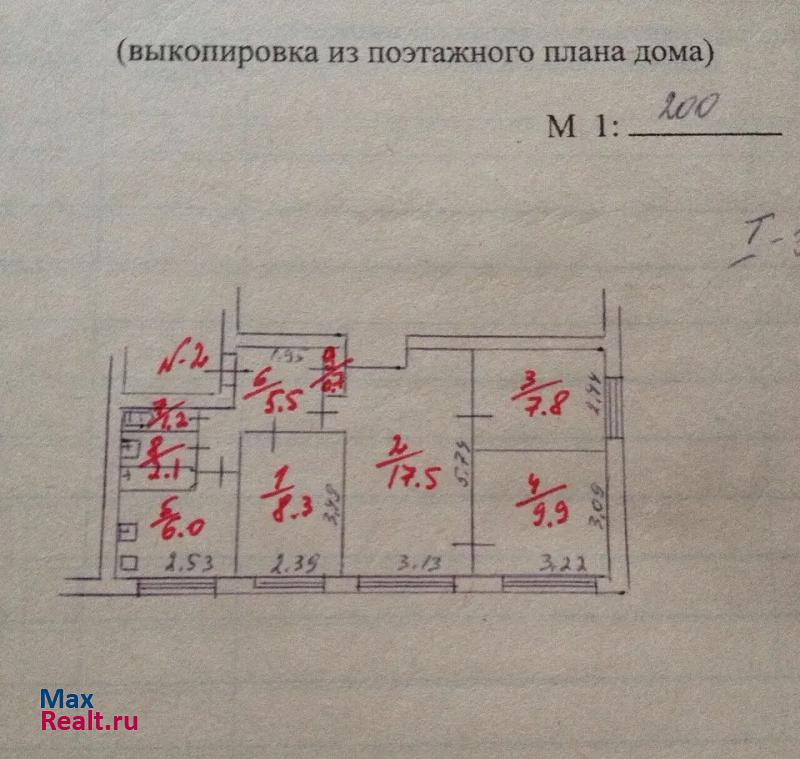 (выкопировка из поэтажного плана дома)
М 1: 200
I-
№2
1.95
6/5.5
3/7.8
2.44
7/1.2
8/2.1
2/17.5
5.74
1/8.3
3.49
4/9.9
3.09
5/6.0
2.53
2.39
3.13
3.22
Max
Realt.ru